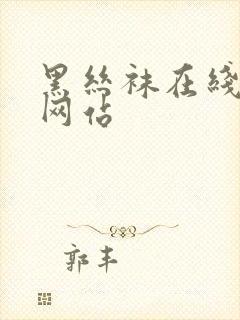 黑丝袜在线
网站
郭丰